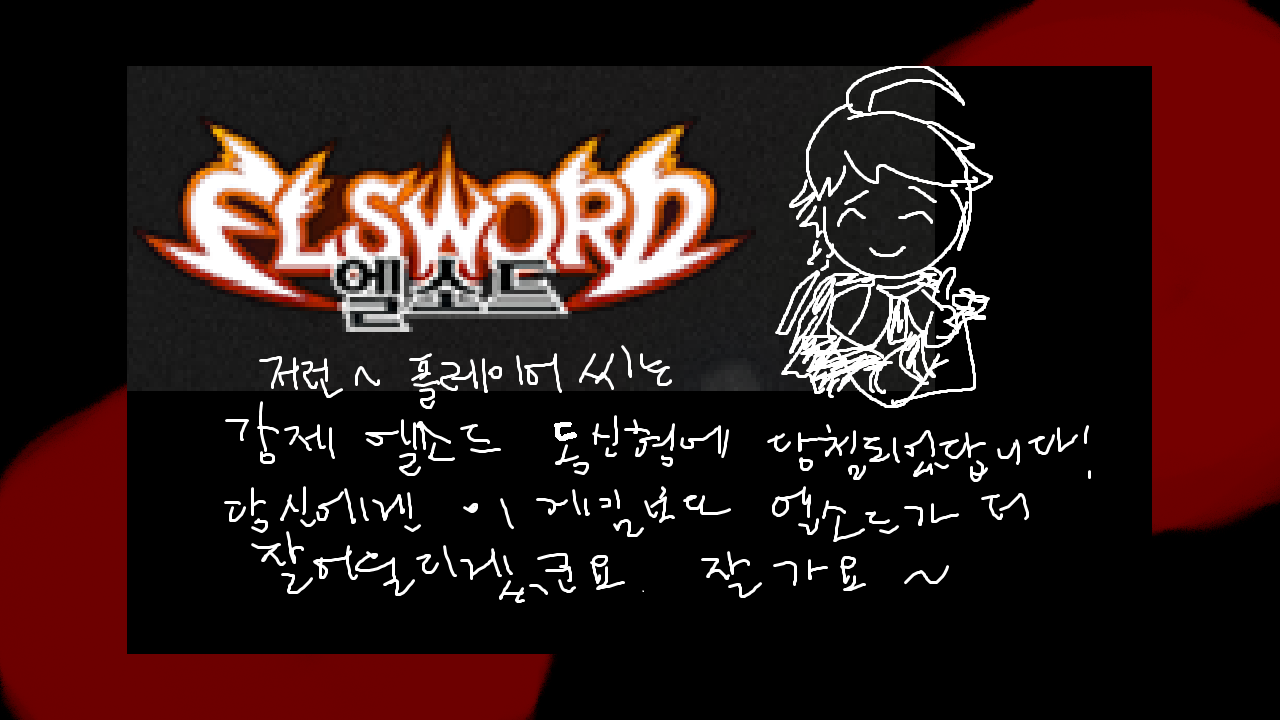 ELSWORD
엘소드
저런~ 플레이어 씨는
강제 엘소드 통신형에 당첨되었답니다!
당신에겐 이 게임보다 엘소드가 더
잘어울리겠군요. 잘가요~